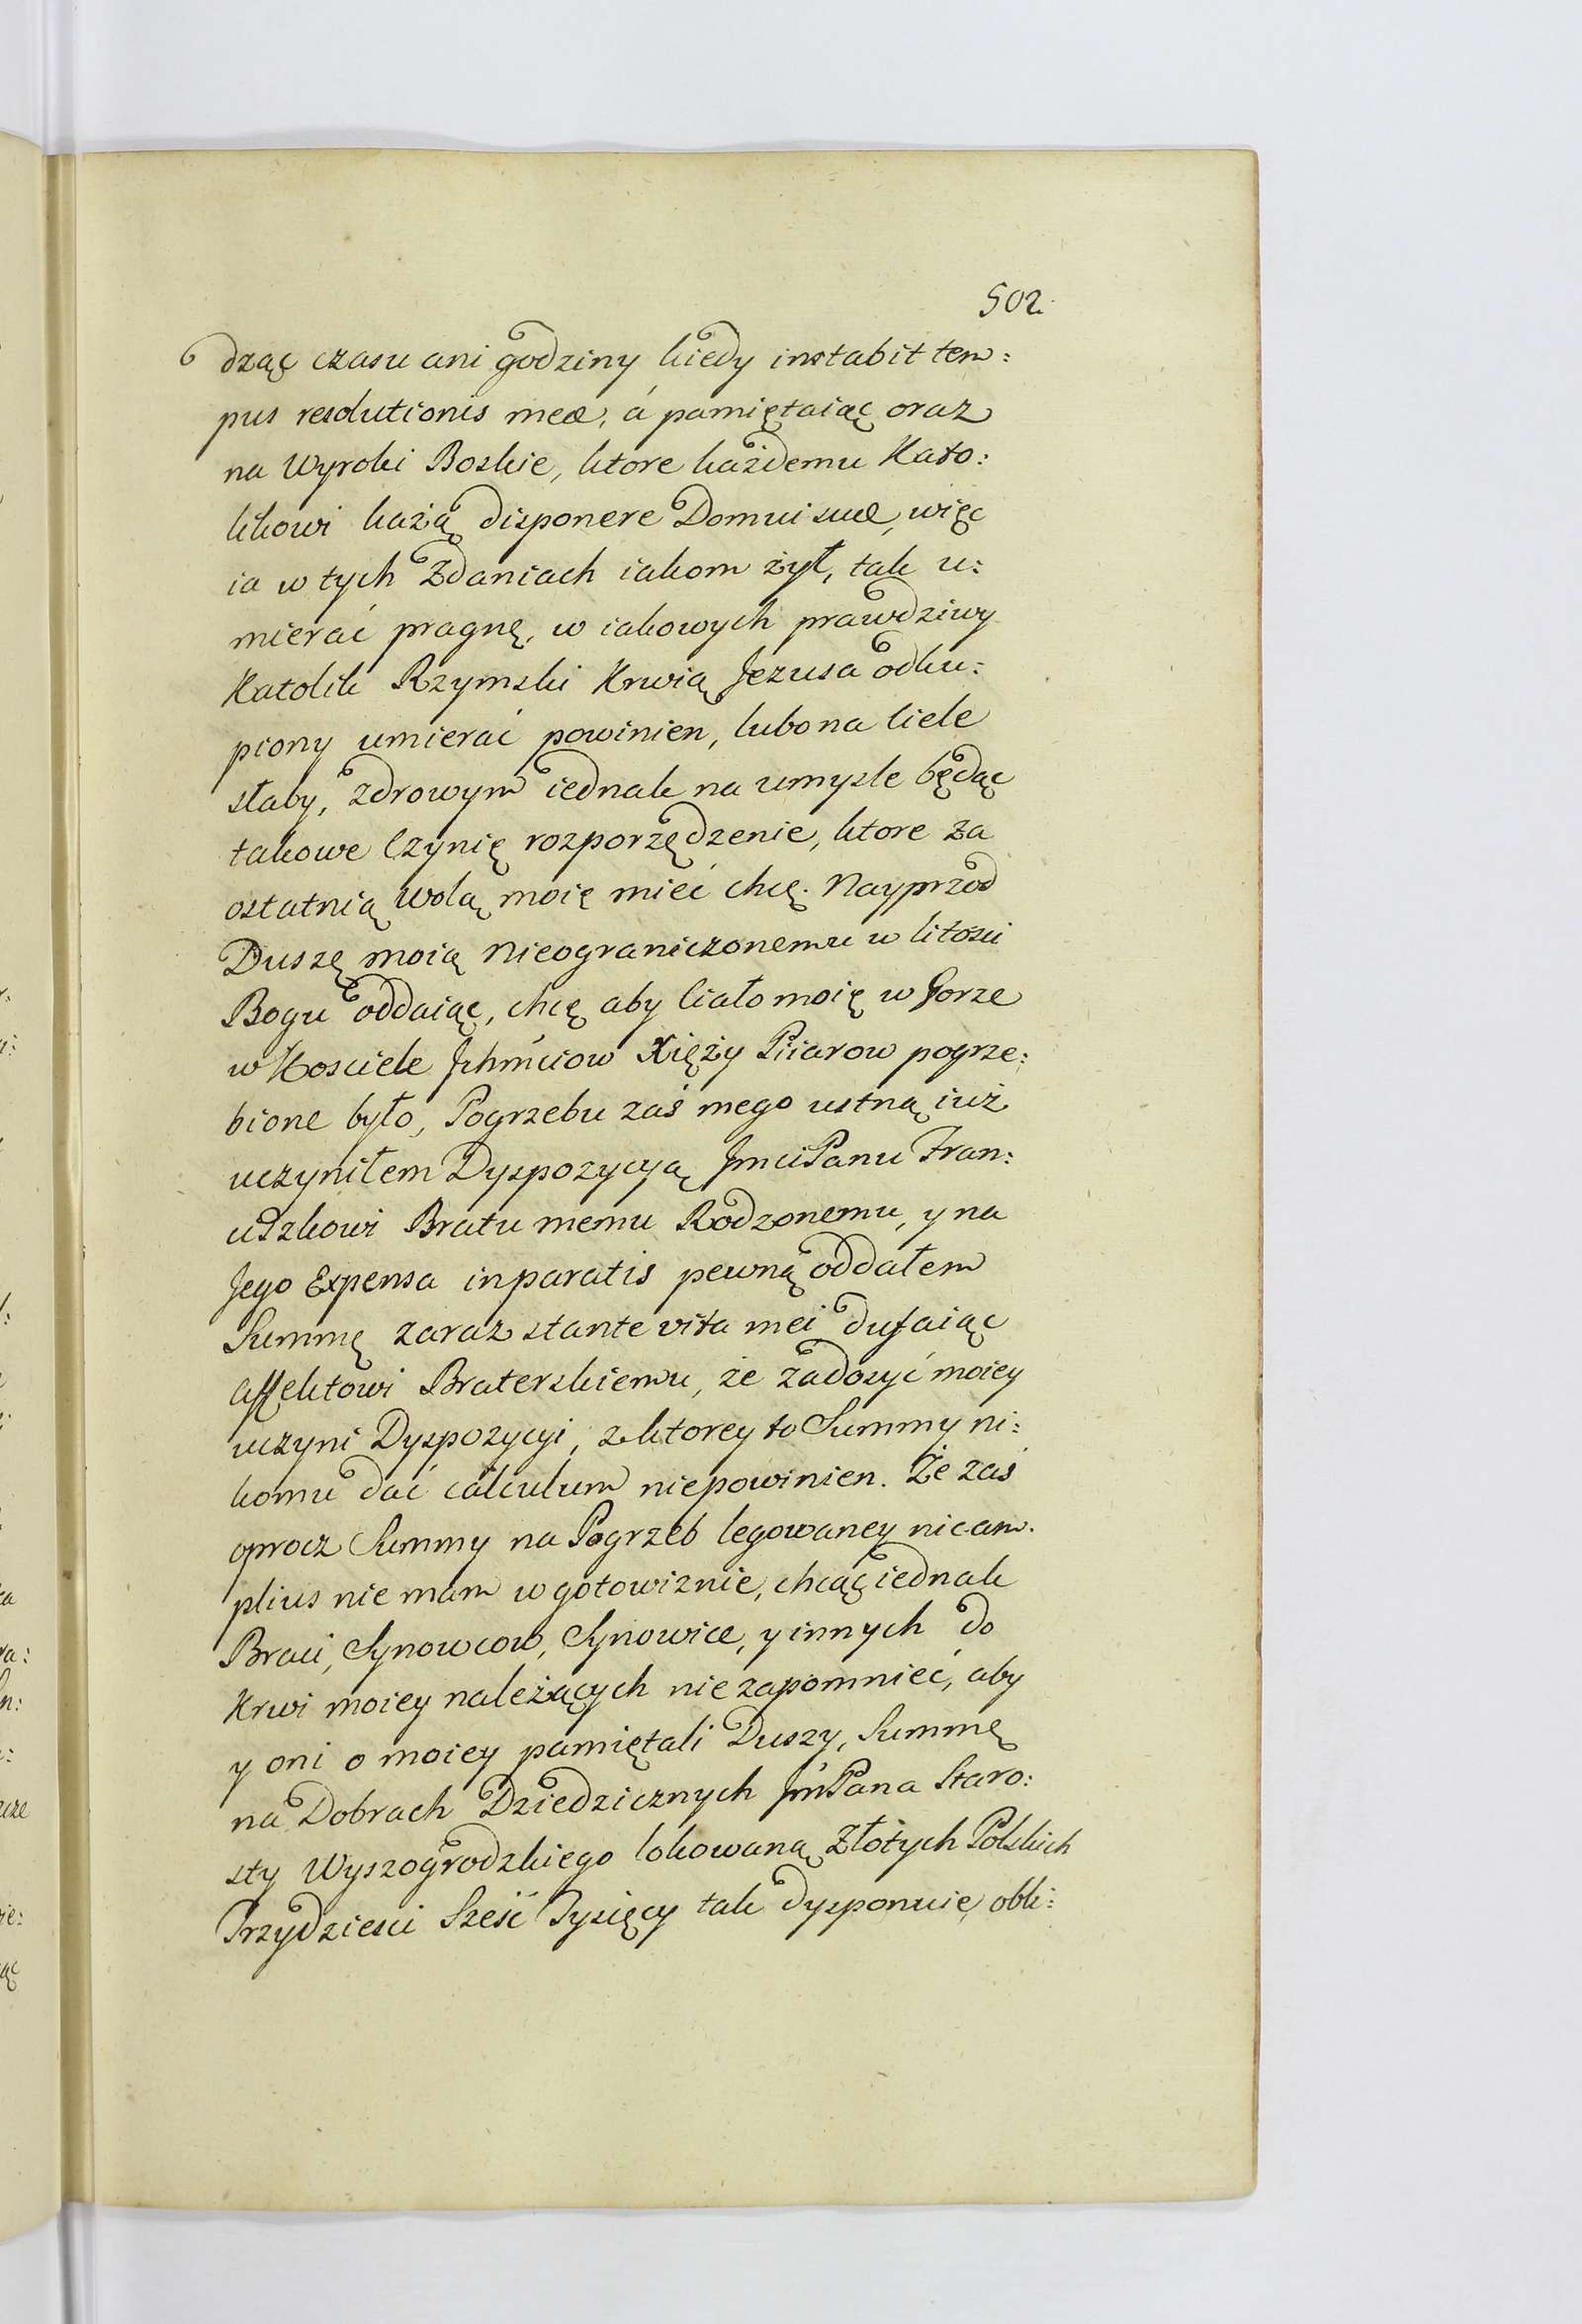 502.
dząc czasu ani godziny kiedy instabit tem:
pus resolutionis meæ, á pamiętaiąc oraz
na Wyroki Boskie, ktore każdemu Kato:
likowi każą disponere Domui suæ, więc
ia w tych Zdaniach iakom żył, tak u:
mierać pragnę, w iakowych prawdziwy
Katolik Rzymski Krwią Jezusa odku:
piony umierać powinien, lubo na Ciele
słaby, zdrowym iednak na umysle będąc
takowe Czynię rozporzędzenie, ktore za
ostatnią Wolą moię mieć chcę. Nayprzod
Duszę moią Nieograniczonemu w litosci
Bogu oddaiąc, chcę aby Ciało moię w Gorze
w Kosciele Jchmciow Xięży Piiarow pogrze:
bione było, Pogrzebu zaś mego ustną iuż
uczyniłem Dyspozycyą JmciPanu Fran:
ciszkowi Bratu memu Rodzonemu, y na
Jego Expensa inparatis pewną oddałem
Summę zaraz stante vita mei dufaiąc
affektowi Braterskiemu, że zadosyć moiey
uczyni Dyspozycyi, z ktorey to Summy ni:
komu dać calculum niepowinien. Że zaś
oprocz Summy na Pogrzeb legowaney nic am.
plius nie mam w gotowiznie, chcąc iednak
Braci, Synowcow, Synowice, y innych do
Krwi moiey należących nie zapomnieć, aby
y oni o moiey pamiętali Duszy, Summę
na Dobrach Dziedzicznych JmPana Staro:
sty Wyszogrodzkiego lokowaną Złotych Polskich
Trzydziesci Sześć Tysięcy tak dysponuię, obli: